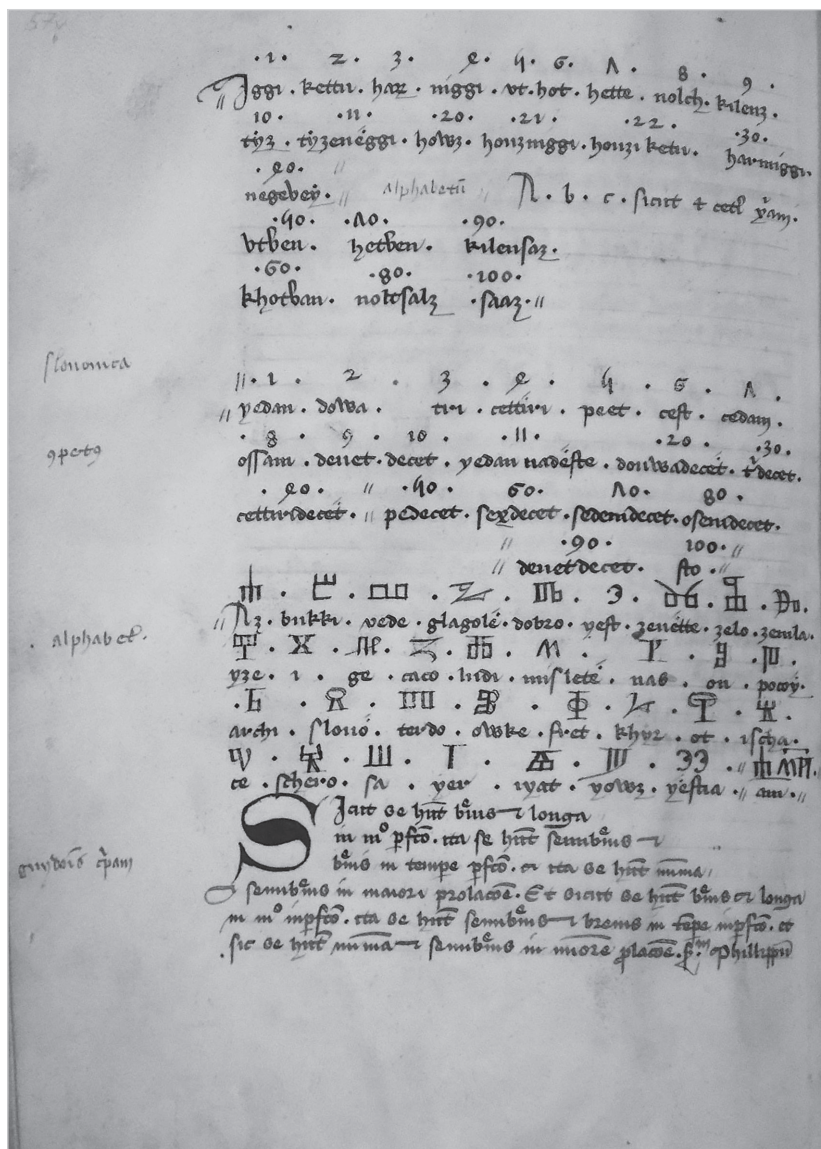 57v
· 1 · 2 · 3 · 4 · 5 · 6 · 7 · 8 · 9 ·
Iggi · kettu · harz · niggi · vt · hot · hette · nolch · kilenz ·
10 · · 11 · · 20 · · 21 · · 22 · · 30 ·
tÿz · tÿzenéggi · howz · houzniggi · houzi ketu · harmiggi ·
· 40 ·
negebeÿ · alphabetū A · b · c · sicut
· 50 · · 70 · · 90 ·
vtben · hetben · kilensaz ·
· 60 · · 80 · · 100 ·
khotban · noltsalz · saaz ·
slouonica
· 1 · 2 · 3 · 4 · 5 · 6 · 7 ·
yedan · dowa · tri · cettiri · peet · cest · cedam ·
· 8 · 9 · 10 · · 11 · · 20 · · 30 ·
ossam · devet · decet · yedan nadéste · douwadecét · tˢdecet ·
· 40 · · 50 · 60 · 70 · 80 ·
cettiridecét · pédecet · sexdecet · sedemdecet · osemdecet ·
· 90 · 100 ·
devét decet · sto ·
Ⰰ · Ⰱ · Ⰲ · Ⰳ · Ⰴ · Ⰵ · Ⰶ · Ⰷ · Ⰸ ·
alphabet
Az · bukki · vede · glagolé · dobro · yest · zevétte · zelo · zemla ·
Ⰻ · Ⰹ · Ⰼ · Ⰽ · Ⰾ · Ⰿ · Ⱀ · Ⱁ · Ⱂ ·
yze · i · ge · caco · ludi · misleté · nas · on · pocoÿ ·
Ⱃ · Ⱄ · Ⱅ · Ⱆ · Ⱇ · Ⱈ · Ⱉ · Ⱋ ·
archi · slouo · terdo · owke · fret · khyr · ot · ischa ·
Ⱌ · Ⱍ · Ⱎ · Ⱜ · Ⱑ · Ⱓ ·
ce · schero · sa · yer · iyat · yowz · yestia · am ·
Sicut se hn̄t bͬuis et longa
in mº p̄fc̄o · ita se hn̄t semibͬuis et
bͬuis in tempe p̄fc̄o · et ita se hn̄t minīa
semibͬuis in maiori prolac̄oe · Et sicut se hn̄t bͬuis et longa
in mº inp̄fc̄o · ita se hn̄t semibͬuis et breuis in tēpe inp̄fc̄o · et
sic se hn̄t minīa et semibͬuis in miore prolac̄oe · Phillippū